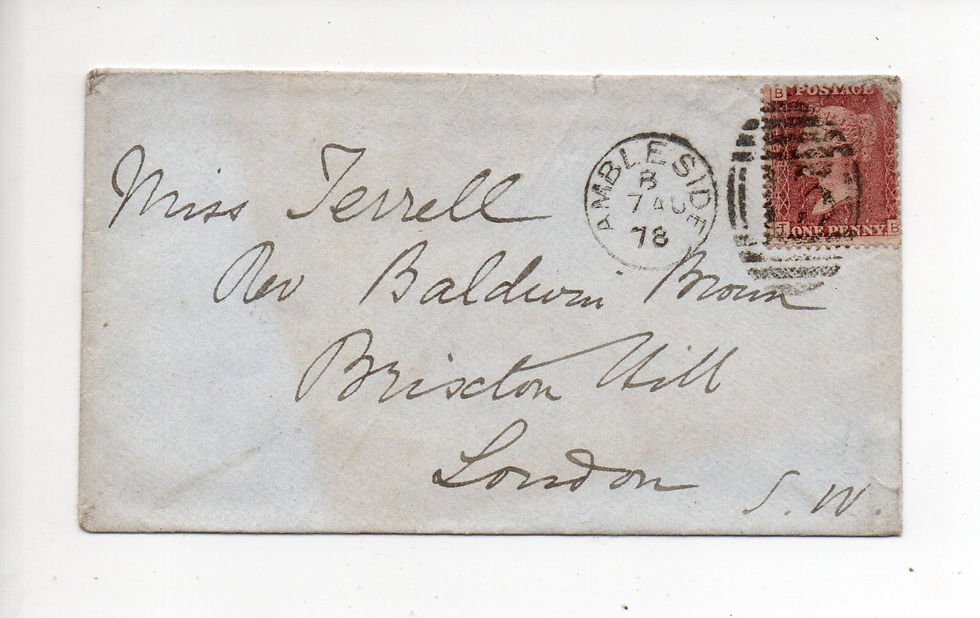 Miss Terrell
Rev Baldwin Brown
Brixton Hill
London
S. W.
AMBLESIDE
B
7 AU
78
B POSTAGE
ONE PENNY B